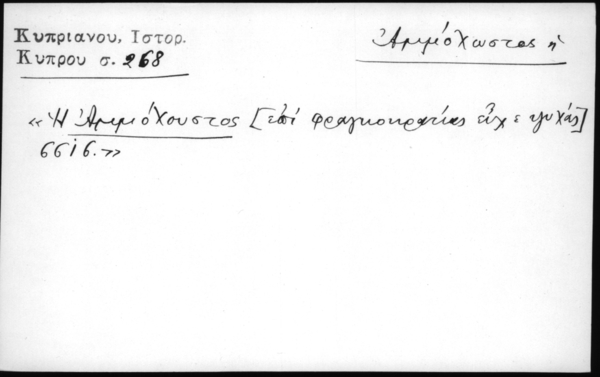 Κυπριανου, Ιστορ.
Κυπρου σ. 268
Ἀμμόχωστος ἡ
«Ἡ Ἀμμόχουστος [ἐπὶ φραγκοκρατίας εἶχε ψυχάς]
6616.»